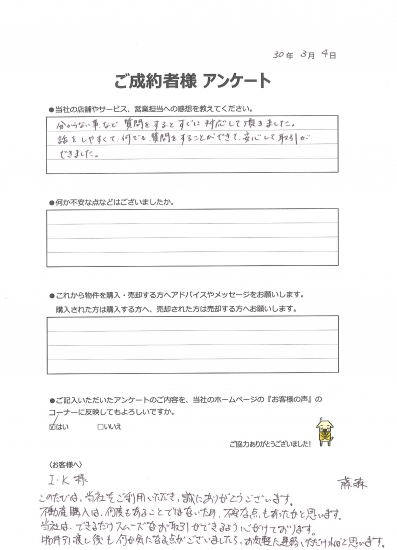 30年 3月 4日
ご成約者様 アンケート
●当社の店舗やサービス、営業担当への感想を教えてください。
分からない事など質問をするとすぐに対応して頂きました。
話をしやすくて、何でも質問をすることができて、安心して取引が
できました。
●何か不安な点などはございましたか。
●これから物件を購入・売却する方へアドバイスやメッセージをお願いします。
購入された方は購入する方へ、売却された方は売却する方へお願いします。
●ご記入いただいたアンケートのご内容を、当社のホームページの『お客様の声』の
コーナーに反映してもよろしいですか。
☑はい □いいえ
ご協力ありがとうございました!
《お客様へ》
I・K 様
このたびは、当社をご利用いただき、誠にありがとうございます。
不動産購入は、何度もあることではないため、不安な点もあったかと思います。
当社は、できるだけスムーズなお取引ができるよう心がけております。
物件引渡し後も何か気になる点がございましたら、お気軽に連絡いただければと思います。